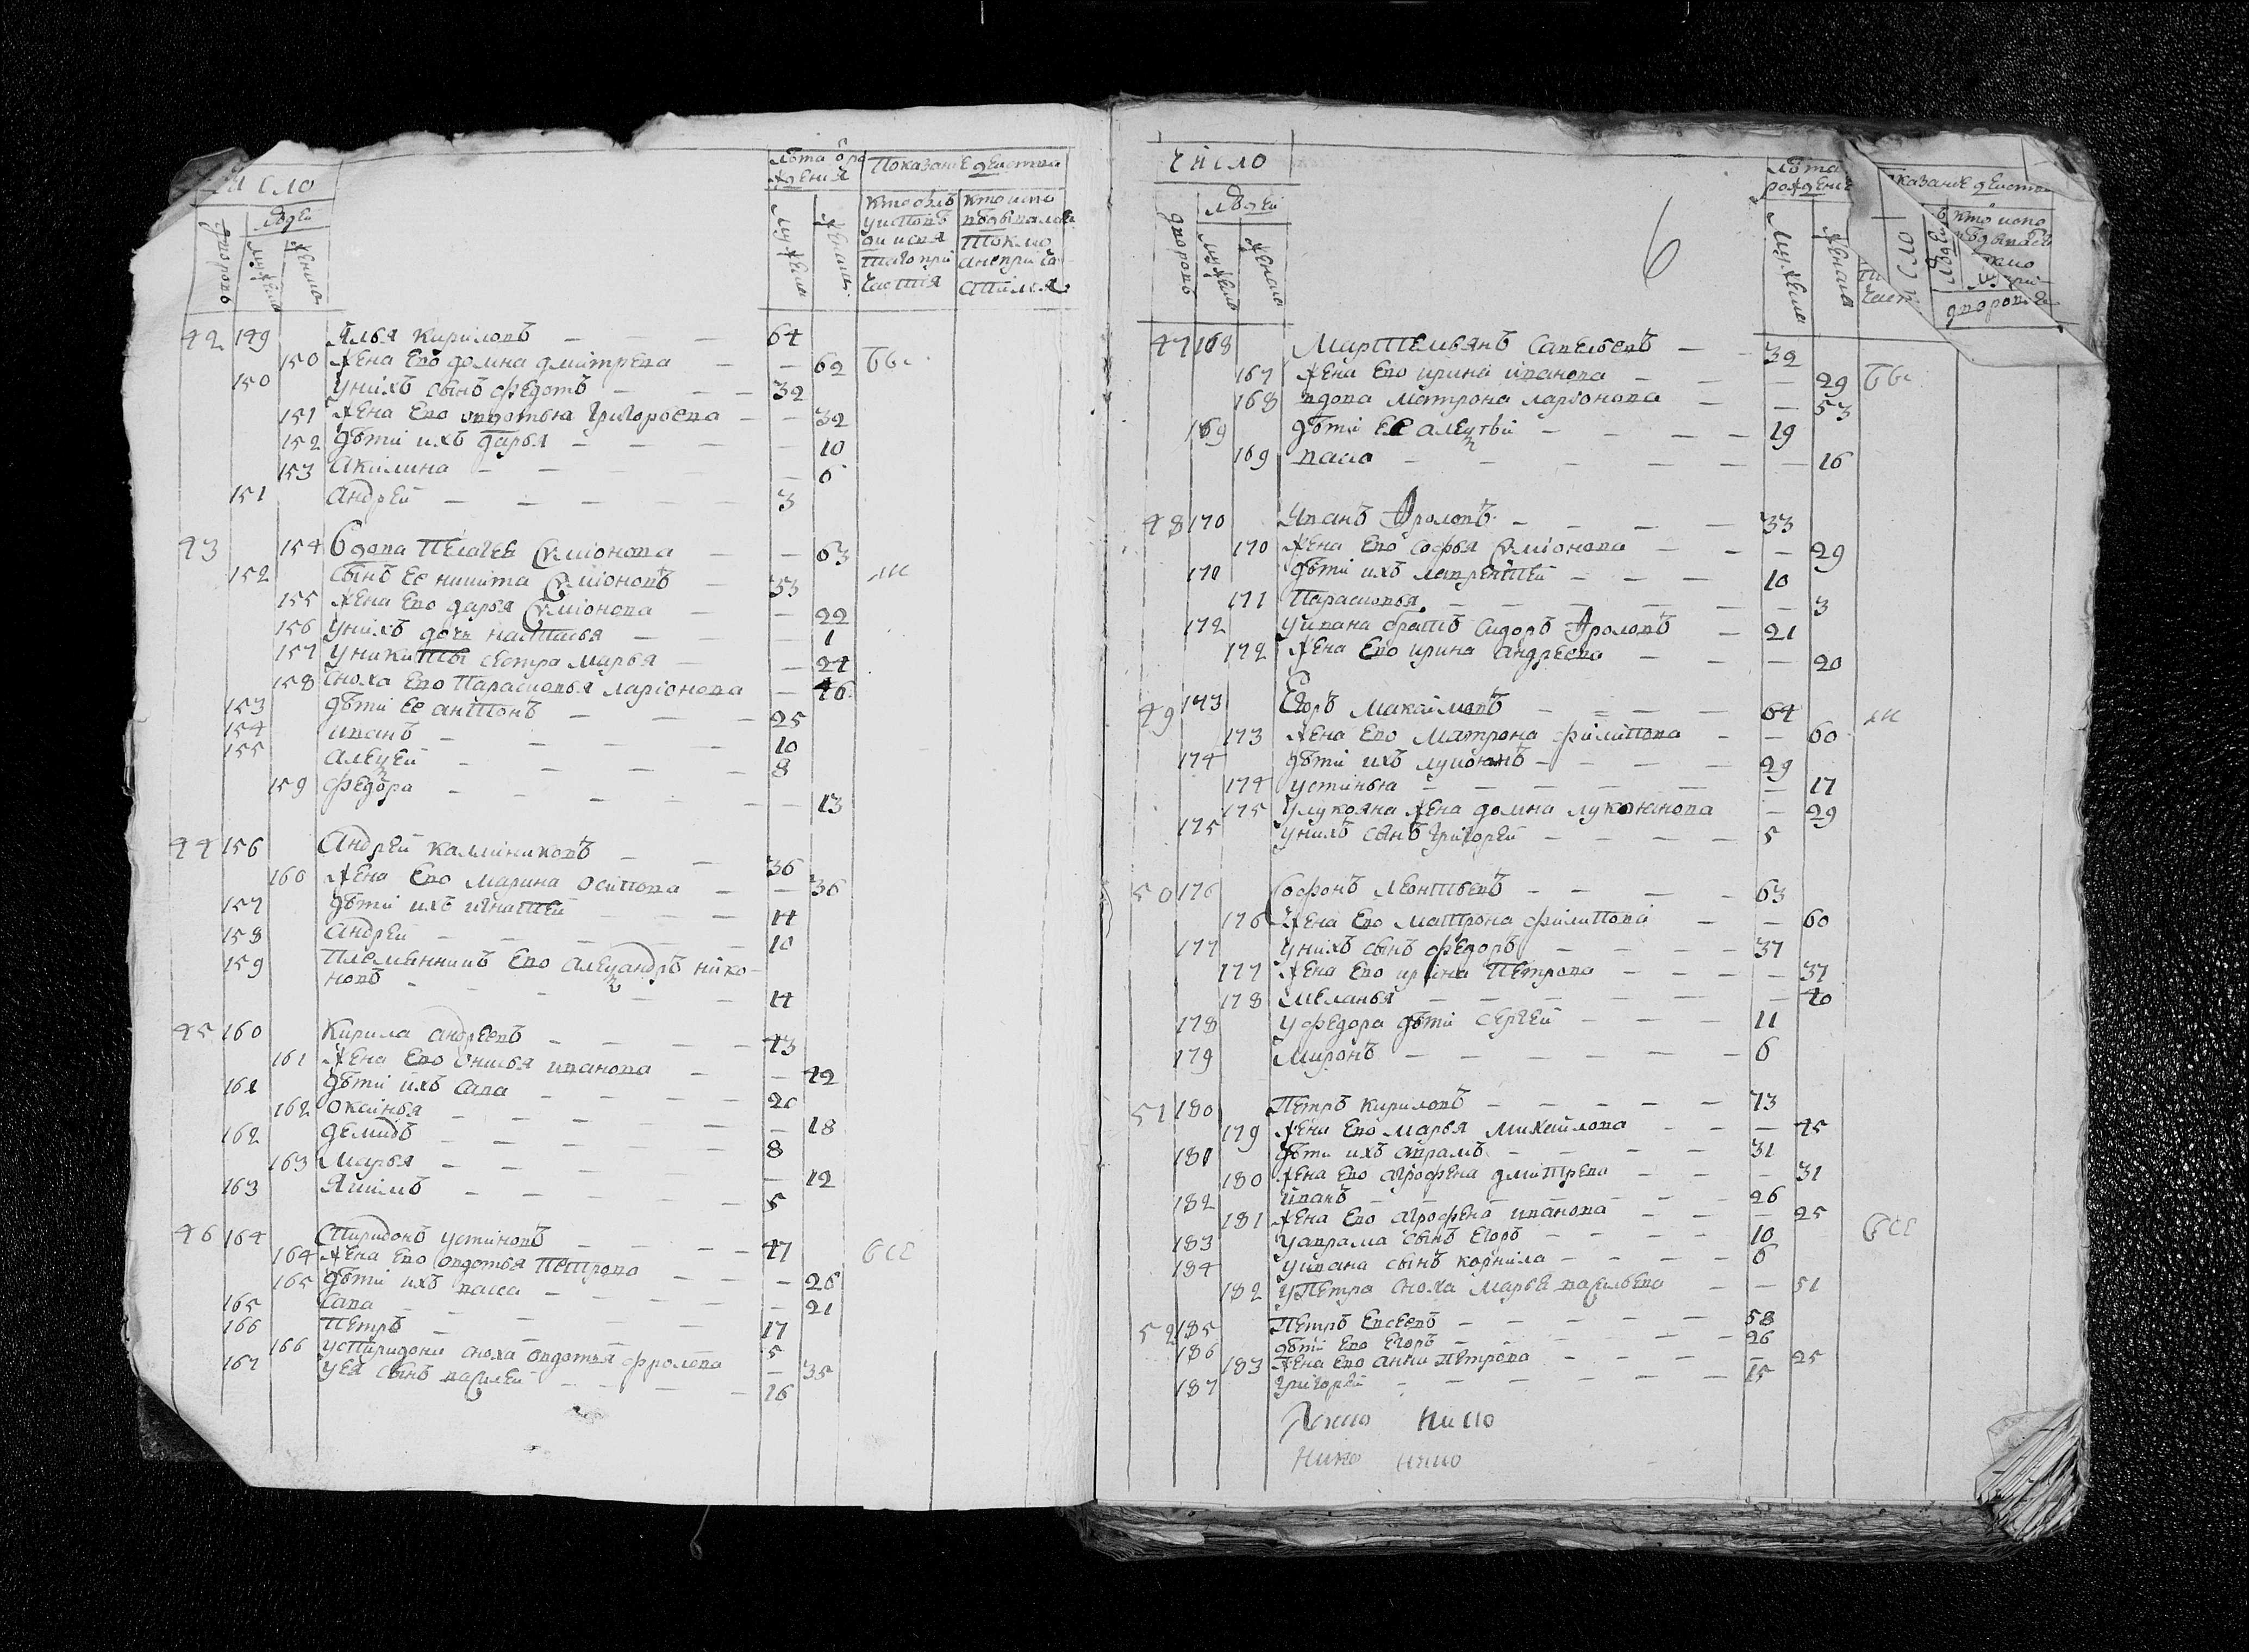 Число
Людей
дворовъ
мужеска
женска
Лѣта ѿ рождения
мужеска
женска
Показание действа
кто былъ у исповѣди и святаго причастия
кто исповѣдывался токмо а не причастился
42 149 Илья Кириловъ — — — 64
150 жена ево домна дмитрева — — 62 Бы
150 у нихъ сынъ Федотъ — — — 32
151 жена ево овдотья григорьева — — 32
152 дѣти ихъ дарья — — — 10
153 Акилина — — — 6
151 Андрей — — — 3
43 154 Вдова Пелагея Симионова — — 63
152 сынъ ее никита Симионовъ — 33
155 жена ево дарья Симионова — — 22
156 у нихъ дочь настасья — — 1
157 у никиты сестра марья — — 24
158 сноха ево Парасковья ларионова — 46
153 дѣти ее антонъ — — — 25
154 иванъ — — — 10
155 алеѯей — — — 8
159 Федора — — — 13
44 156 Андрей калиниковъ — — 36
160 жена ево марина осипова — — 36
157 дѣти ихъ игнатей — — — 14
158 Андрей — — — 10
159 Племянникъ ево алеѯандръ нико-
новъ — — — 14
45 160 Кирила андреевъ — — — 43
161 жена ево онисья иванова — — 42
161 дѣти ихъ Сава — — — 20
162 оксинья — — — 18
162 демидъ — — — 8
163 марья — — — 12
163 Якимъ — — — 5
46 164 Спиридонъ устиновъ — — — 47
164 жена ево овдотья Петрова — — 26 Все
165 дѣти ихъ васса — — — 21
165 Сава — — — 17
166 Петръ — — — 5
166 у спиридона сноха овдотья фролова — 35
167 у ея сынъ василей — — — 16
Число
Людей
дворовъ
мужеска
женска
6
Лѣта рождения
мужеска
женска
47 168 Мартемьянъ Савельевъ — 32
167 жена ево ирина иванова — — 29 Бы
168 вдова матрона ларионова — — 53
169 дѣти ее алеѯѣй — — — 19
169 васса — — — 16
48 170 Иванъ Фроловъ — — — 33
170 жена ево софья Симионова — — 29
171 дѣти ихъ лаврентей — — — 10
171 Парасковья — — — 3
172 у ивана братъ сидоръ Фроловъ — 21
172 жена ево ирина андреева — — 20
49 173 Егоръ макаимовъ — — — 64
173 жена ево матрона филипова — — 60
174 дѣти ихъ лукоянъ — — — 29
174 устинья — — — 17
175 у лукояна жена домна лукоянова — 29
175 у нихъ сынъ григорей — — — 5
50 176 Софонъ леонтьевъ — — — 63
176 жена ево матрона филипова — — 60
177 у нихъ сынъ федоръ — — — 37
177 жена ево ирина Петрова — — 37
178 меланья — — — 40
178 у федора дѣти сергей — — — 11
179 миронъ — — — 6
51 180 Петръ кириловъ — — — 73
179 жена ево марья михайлова — — 75
181 дѣти ихъ аврамъ — — — 31
180 жена ево агрофена дмитрева — — 31
182 иванъ — — — 26
181 жена ево агрофена иванова — — 25
183 у аврама сынъ егоръ — — — 10 Все
184 у ивана сынъ корнила — — — 6
182 у Петра сноха марья васильева — — 51
52 185 Петръ евсеевъ — — — 58
186 дѣти ево егоръ — — — 26
183 жена ево анна Петрова — — 25
187 григорей — — — 15